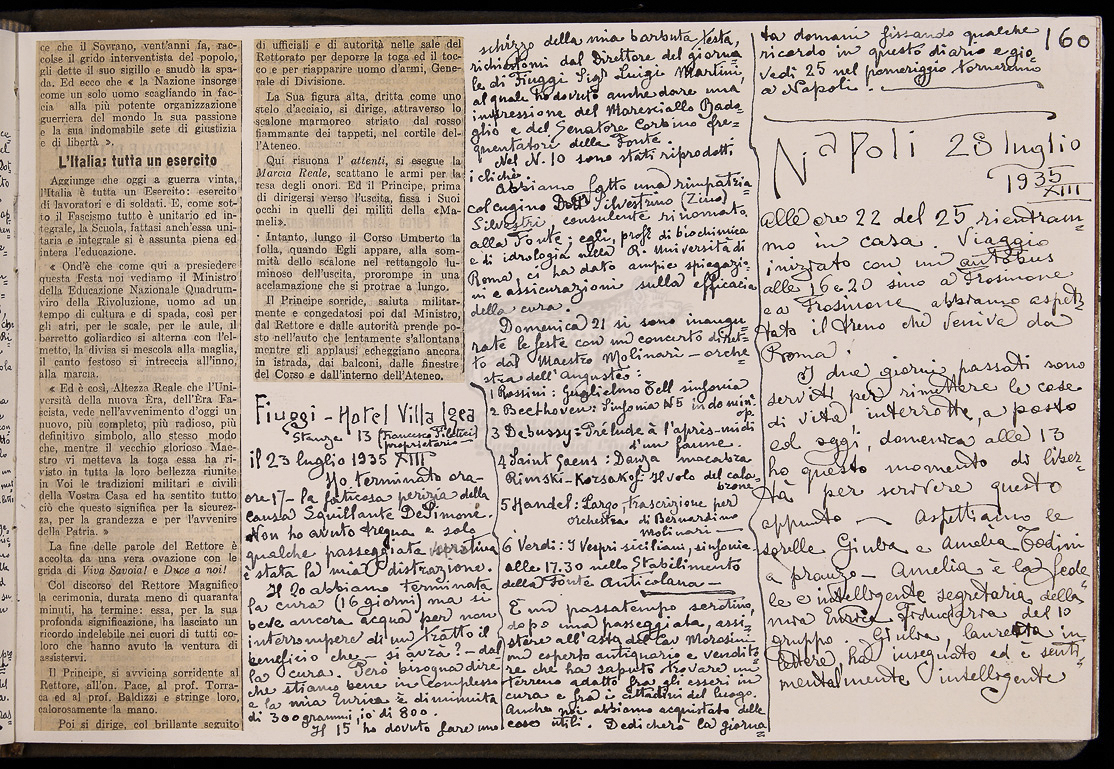 ce che il Sovrano, vent'anni fa, rac-
colse il grido interventista del popolo,
gli dette il suo sigillo e snudò la spa-
da. Ed ecco che « la Nazione insorge
come un solo uomo scagliando in fac-
cia alla più potente organizzazione
guerriera del mondo la sua passione
e la sua indomabile sete di giustizia
e di libertà ».
L'Italia: tutta un esercito
Aggiunge che oggi a guerra vinta,
l'Italia è tutta un Esercito: esercito
di lavoratori e di soldati. E, come sot-
to il Fascismo tutto è unitario ed in-
tegrale, la Scuola, fattasi anch'essa uni-
taria e integrale si è assunta piena ed
intera l'educazione.
« Ond'è che come qui a presiedere
questa Festa noi vediamo il Ministro
della Educazione Nazionale Quadrum-
viro della Rivoluzione, uomo ad un
tempo di cultura e di spada, così per
gli atri, per le scale, per le aule, il
berretto goliardico si alterna con l'el-
metto, la divisa si mescola alla maglia,
il canto festoso si intreccia all'inno,
alla marcia.
« Ed è così, Altezza Reale che l'Uni-
versità della nuova Èra, dell'Èra Fa-
scista, vede nell'avvenimento d'oggi un
nuovo, più completo, più radioso, più
definitivo simbolo, allo stesso modo
che, mentre il vecchio glorioso Mae-
stro vi metteva la toga essa ha ri-
visto in tutta la loro bellezza riunite
in Voi le tradizioni militari e civili
della Vostra Casa ed ha sentito tutto
ciò che questo significa per la sicurez-
za, per la grandezza e per l'avvenire
della Patria. »
La fine delle parole del Rettore è
accolta da una vera ovazione con le
grida di Viva Savoia! e Duce a noi!
Col discorso del Rettore Magnifico
la cerimonia, durata meno di quaranta
minuti, ha termine: essa, per la sua
profonda significazione, ha lasciato un
ricordo indelebile nei cuori di tutti co-
loro che hanno avuto la ventura di
assistervi.
Il Principe, si avvicina sorridente al
Rettore, all'on. Pace, al prof. Torra-
ca ed al prof. Baldizzi e stringe loro,
calorosamente la mano.
Poi si dirige, col brillante seguito
di ufficiali e di autorità nelle sale del
Rettorato per deporre la toga ed il toc-
co e per riapparire uomo d'armi, Gene-
rale di Divisione.
La Sua figura alta, dritta come uno
stelo d'acciaio, si dirige, attraverso lo
scalone marmoreo striato dal rosso
fiammante dei tappeti, nel cortile del-
l'Ateneo.
Qui risuona l' attenti, si esegue la
Marcia Reale, scattano le armi per la
resa degli onori. Ed il Principe, prima
di dirigersi verso l'uscita, fissa i Suoi
occhi in quelli dei militi della «Ma-
meli».
Intanto, lungo il Corso Umberto la
folla, quando Egli appare, alla som-
mità dello scalone nel rettangolo lu-
minoso dell'uscita, prorompe in una
acclamazione che si protrae a lungo.
Il Principe sorride, saluta militar-
mente e congedatosi poi dal Ministro,
dal Rettore e dalle autorità prende po-
sto nell'auto che lentamente s'allontana
mentre gli applausi echeggiano ancora
in istrada, dai balconi, dalle finestre
del Corso e dall'interno dell'Ateneo.
Fiuggi - Hotel Villa Igea
Stanza 13 (Francesco
proprietario -
il 23 luglio 1935 XIII
Ho terminato ora -
ore 17 - la faticosa perizia della
causa Squillante De Simone.
Non ho avuto tregua e solo
qualche passeggiata
è stata la mia distrazione.
Il 20 abbiamo terminata
la cura (16 giorni) ma si
beve ancora acqua per non
interrompere di un tratto il
beneficio che - si avrà? - dal
la cura. Però bisogna dire
che stiamo bene in complesso
e la mia Enrica è diminuita
di 300 grammi, io di 800.
Il 15 ho dovuto fare uno
schizzo della mia barbuta testa,
richiestomi dal Direttore del giorna
le di Fiuggi Sigr Luigi Martini,
al quale ho dovuto anche dare una
impressione del Maresciallo Bado
glio e del Senatore Corbino fre=
quentatori della Fonte.
Nel N. 10 sono stati riprodotti
i clichè.
Abbiamo fatto una rimpatria
col cugino Dott Silvestrino (Zino)
Silvestri consulente rinomato
alla Fonte; egli, prof. di biochimica
e di idrologia nella R. Università di
Roma, ci ha dato ampie spiegazio
ni e assicurazioni sulla efficacia
della cura.
Domenica 21 si sono inaugu
rate le feste con un concerto diret=
to dal Maestro Molinari - orche
stra dell'Augusteo:
1 Rossini: Guglielmo Tell sinfonia
2 Beethoven: Sinfonia N5 in do min
op.
3 Debussy: Prélude à l'après-midi
d'un faune.
4 Saint Saens: Danza macabra
Rimski-Korsakof: Il volo del cala
brone
5 Handel: Largo, trascrizione per
orchestra di Bernardino
Molinari -
6 Verdi: I Vespri siciliani, sinfonia.
alle 17.30 nello Stabilimento
della Fonte Anticolana -
È un passatempo serotino,
dopo una passeggiata, assi=
stere all'Asta del Cav Morosini
un esperto antiquario e vendito
re che ha saputo trovare un
terreno adatto fra gli esseri in
cura e fra i cittadini del luogo.
Anche noi abbiamo acquistato delle
cose utili. Dedicherò la giorna=
ta domani fissando qualche
ricordo in questo diario e gio
vedì 25 nel pomeriggio torneremo
a Napoli.
160
Napoli 28 luglio
1935
XIII
alle ore 22 del 25 rientram
mo in casa. Viaggio
iniziato con un autobus
alle 16 e 20 sino a Frosinone
e a Frosinone abbiamo aspet
tato il treno che veniva da
Roma.
I due giorni passati sono
serviti per rimettere le cose
di vita, interrotte, a posto
ed oggi, domenica alle 13
ho questo momento di liber
tà per scrivere questo
appunto - Aspettiamo le
sorelle Giulia e Amelia Todini
a pranzo - Amelia è la fede
le e intelligente segretaria della
mia Enrica Fiduciaria del 10
gruppo. Giulia, laureata in
lettere, ha insegnato ed è senti
mentalmente intelligente